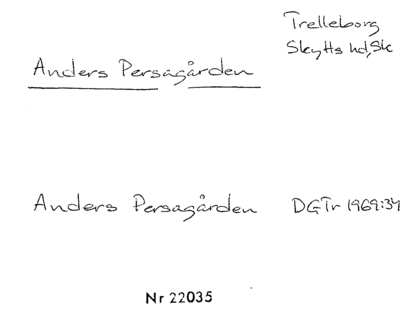 Trelleborg
Skytts hd, Sk
Anders Persagården
Anders Persagården DGTr 1969:34
Nr 22035